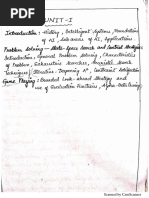 UNIT-I
Introduction: History, Intelligent Systems, Foundations
of AI, Sub areas of AI, Applications
Problem Solving - State-Space Search and Control Strategies
Introduction, General Problem Solving, Characteristics
of Problem, Exhaustive Searches, Heuristic Search
Techniques, Iterative-Deepening A*, Constraint Satisfaction
Game Playing: Bounded Look-ahead Strategy and
use of Evaluation Functions, Alpha-Beta Pruning
Scanned by CamScanner